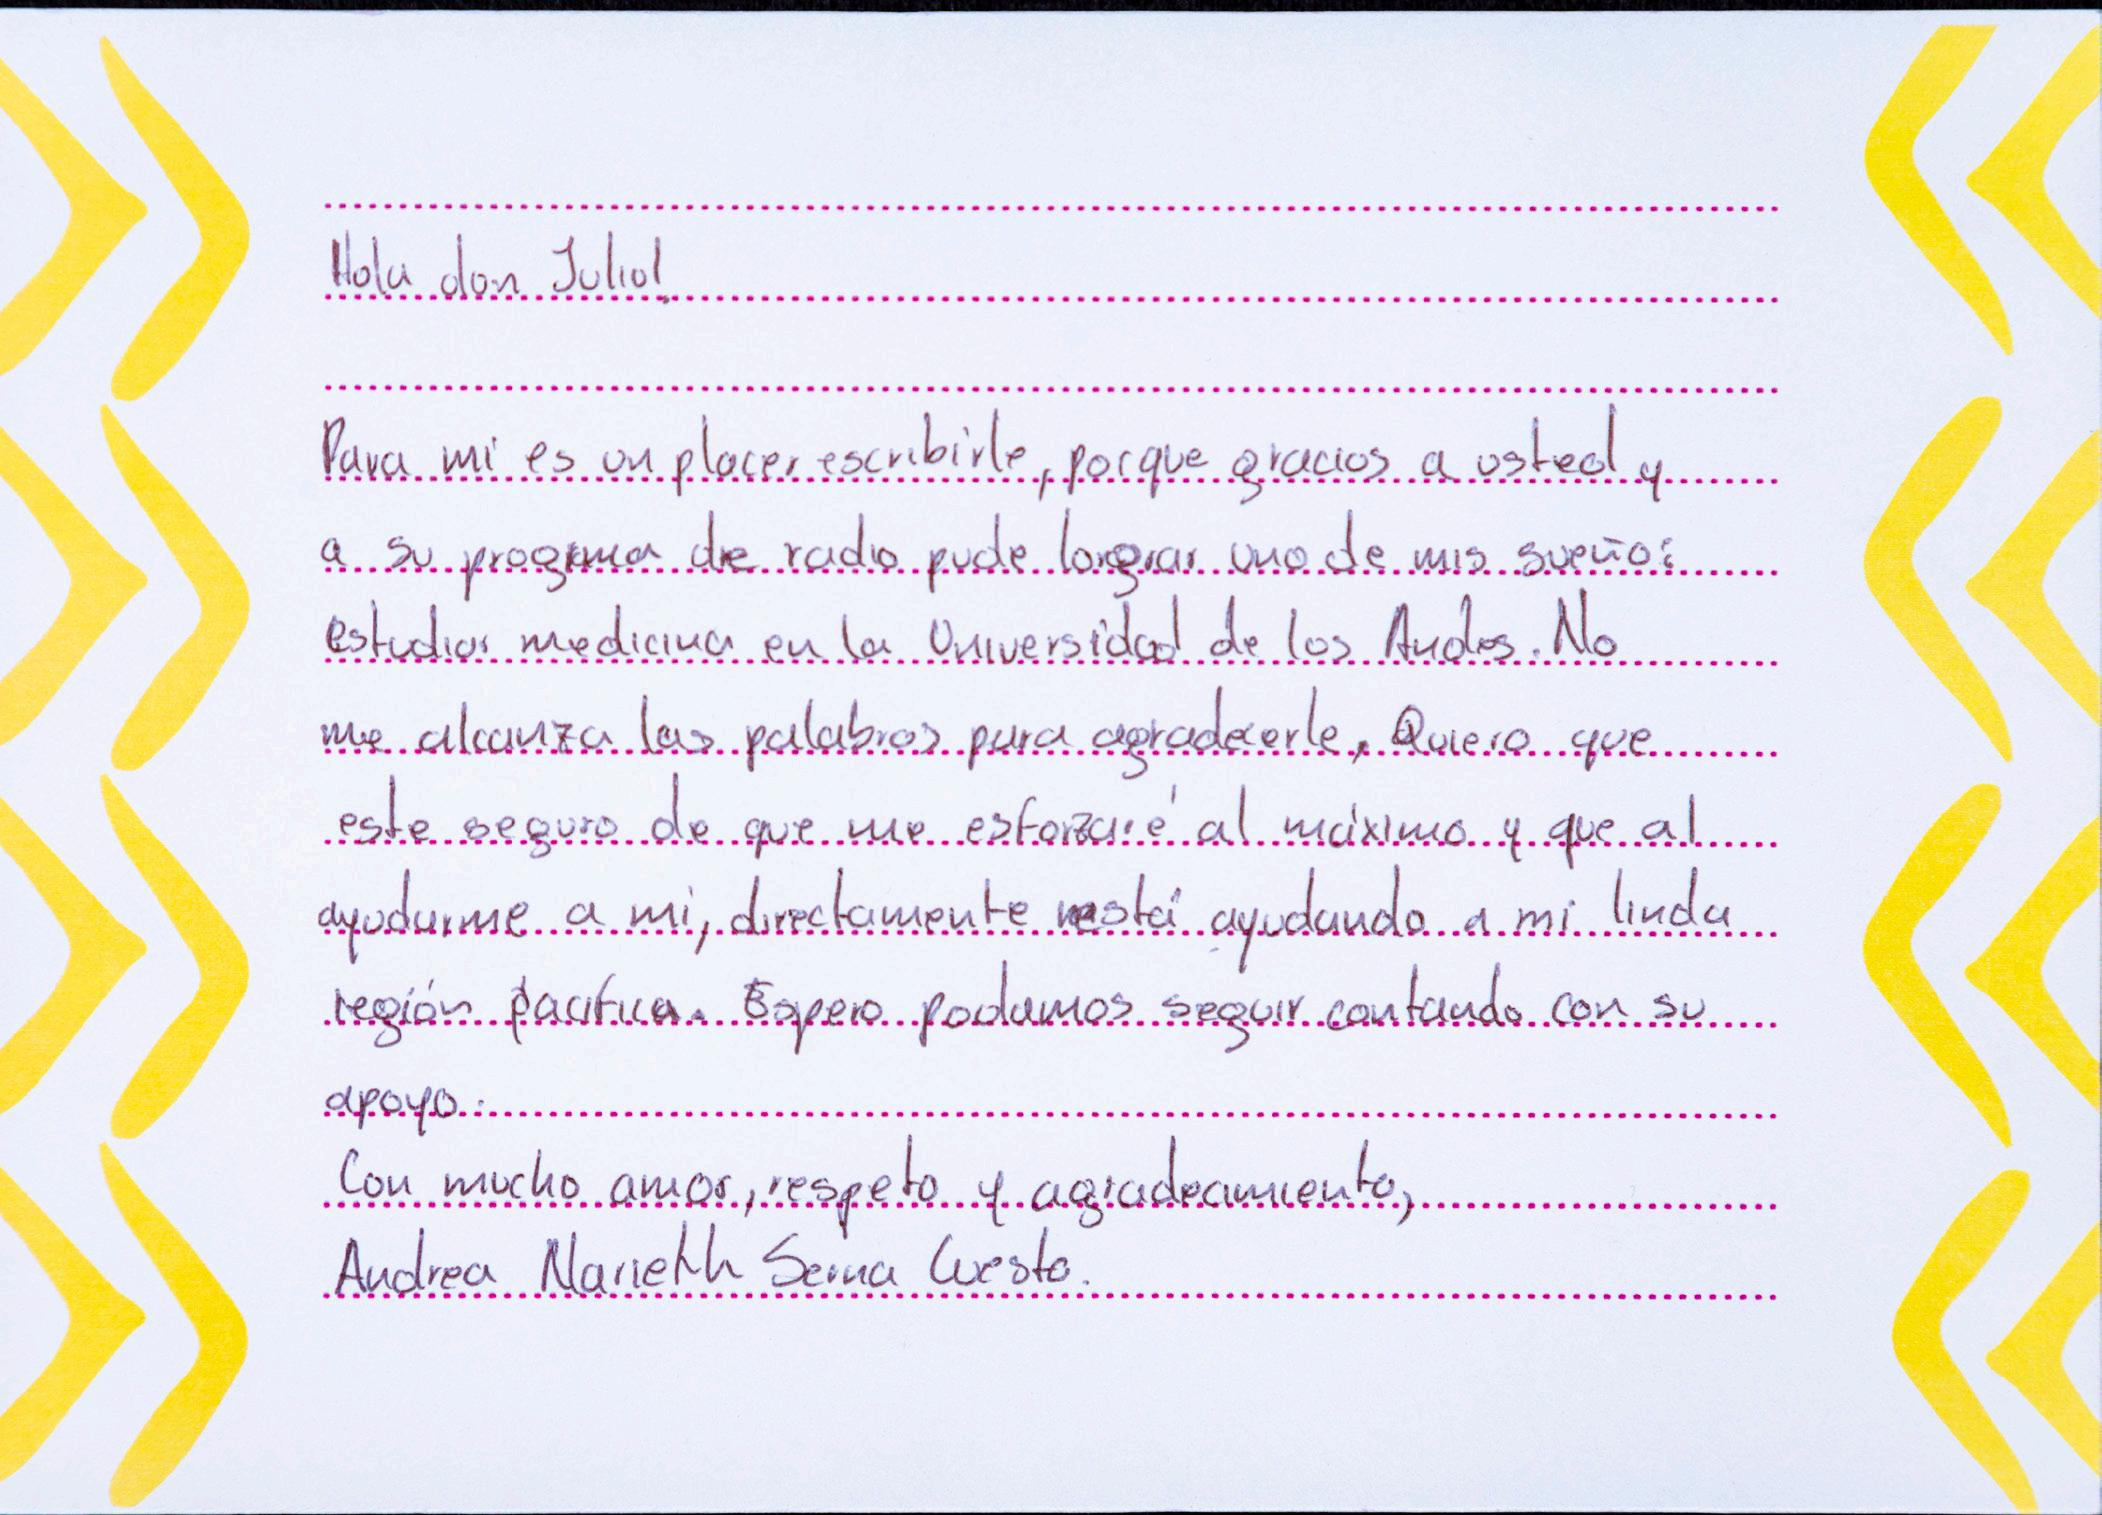 Hola don Julio!
Para mi es un placer escribirle, porque gracias a usted y
a su programa de radio pude lograr uno de mis sueño:
estudiar medicina en la Universidad de los Andes. No
me alcanza las palabras para agradecerle, Quiero que
este seguro de que me esforzaré al máximo y que al
ayudarme a mi, directamente está ayudando a mi linda
región pacifica. Espero podamos seguir contando con su
apoyo.
Con mucho amor, respeto y agradecimiento,
Andrea Narieth Serna Cuesta.